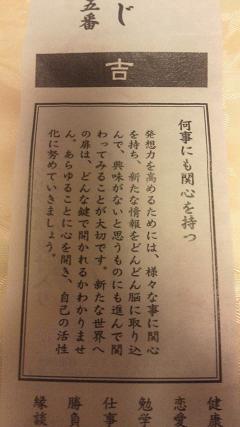 じ
五番
吉
何事にも関心を持つ
発想力を高めるためには、様々な事に関心
を持ち、新たな情報をどんどん脳に取り込
んで、興味がないと思うものにも進んで関
わってみることが大切です。新たな世界へ
の扉は、どんな鍵で開かれるかわかりませ
ん。あらゆることに心を開き、自己の活性
化に努めていきましょう。
健康
恋愛
勉学
仕事
勝負
縁談